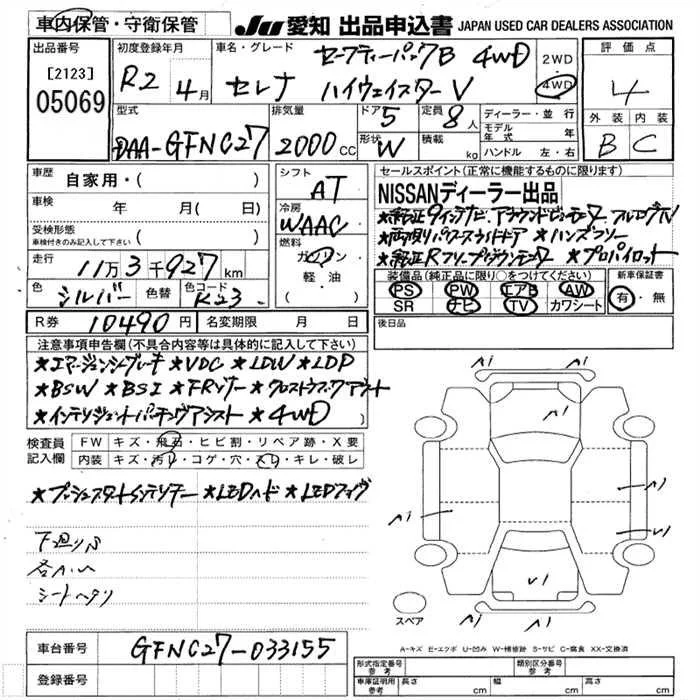 車内保管・守衛保管
JU 愛知 出品申込書 JAPAN USED CAR DEALERS ASSOCIATION
出品番号
[2123]
05069
初度登録年月
R2 4月
車名・グレード
セーフティーパックB 4WD
セレナ ハイウェイスターV
2WD
4WD
評価点
4
外装 内装
B C
型式
DAA-GFNC27
排気量
2000 CC
ドア
5
形状
W
定員
8人
積載
kg
ディーラー・並行
モデル年式 年
ハンドル 左・右
車歴
自家用・( )
車検 年 月(日 )
受検形態
車検付きのみ記入して下さい ( )
走行
11万3千927km
色
シルバー
色替
色コード
K23
シフト
AT
冷房
WAAC
燃料
ガソリン
軽・油
( )
セールスポイント(正常に機能するものに限ります)
NISSANディーラー出品
★純正9インチナビ、アラウンドビューモニター フルセグTV
★両側パワースライドドア ★ハンズフリー
★純正Rフリップダウンモニター ★プロパイロット
装備品(純正品に限り○をつけてください)
PS PW エアB AW
SR ナビ TV カワシート
新車保証書
有・無
後日品
R券 10490円 名変期限 月 日
注意事項申告欄(不具合内容等は具体的に記入して下さい)
★エマージェンシーブレーキ ★VDC ★LDW ★LDP
★BSW ★BSI ★FRソナー ★クロストラフィックアラート
★インテリジェントパーキングアシスト ★4WD
検査員記入欄
FW キズ・飛石・ヒビ割・リペア跡・X要
内装 キズ・汚れ・コゲ・穴・スレ・キレ・破レ
★プッシュスタートインテリキー ★LEDヘッド ★LEDフォグ
下廻りS
各小い
シートヘタリ
A1
A1
A1
A1
A1
U1
U1
A1
スペア
A-キズ E-エクボ U-凹み W-補修跡 S-サビ C-腐食 XX-交換済
車台番号 GFNC27-033155
登録番号
形式指定番号 参考
類別区分番号 参考
車庫証明用 参考 長さ cm 幅 cm 高さ cm